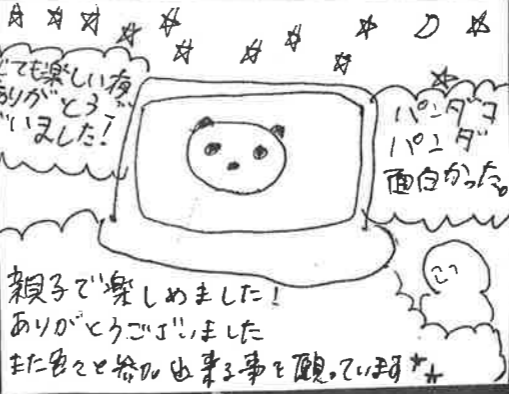 とても楽しい夜
ありがとう
ございました!
パンダコ
パンダ
面白かった。
親子で楽しめました!
ありがとうございました
また色々と参加出来る事を願っています